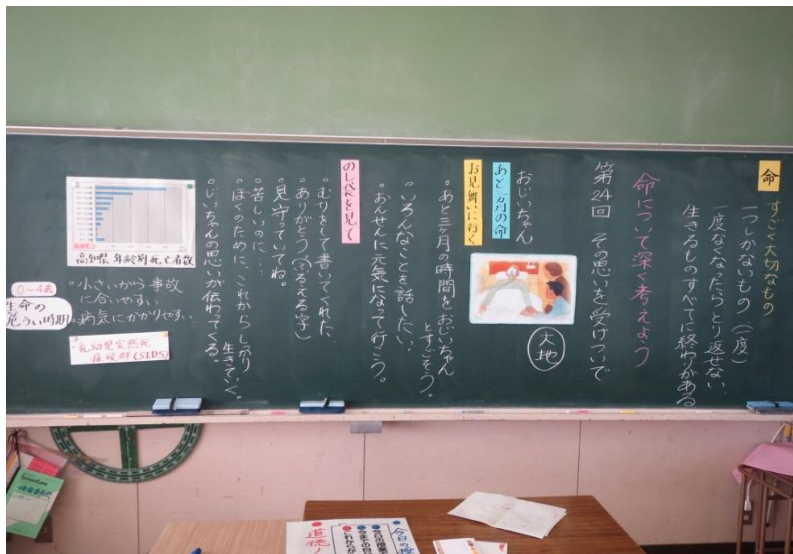 命
すごく大切なもの
一つしかないもの(一度)
一度なくなったらとり返せない
生きるものすべてに終わりがある
命について深く考えよう
第24回 その思いを受けついで
大地
おじいちゃん
あと三ヶ月の命
お見舞いに行く
。あと三ヶ月の時間をおじいちゃん
とすごそう。
。いろんなことを話したい。
。おんせんに元気になって行こう。
のし袋を見て
。むりをして書いてくれた、
。ありがとう(ふるえる字)
。見守っていてね。
。苦しいのに…
。ぼくのために、これからしっかり
生きていく。
。じいちゃんの思いが伝わってくる。
高知県 年齢別死亡者数
0~4歳
。小さいから事故
に合いやすい。
。病気にかかりやすい。
生命の
危うい時期
・乳幼児突然死
症候群(SIDS)
道徳